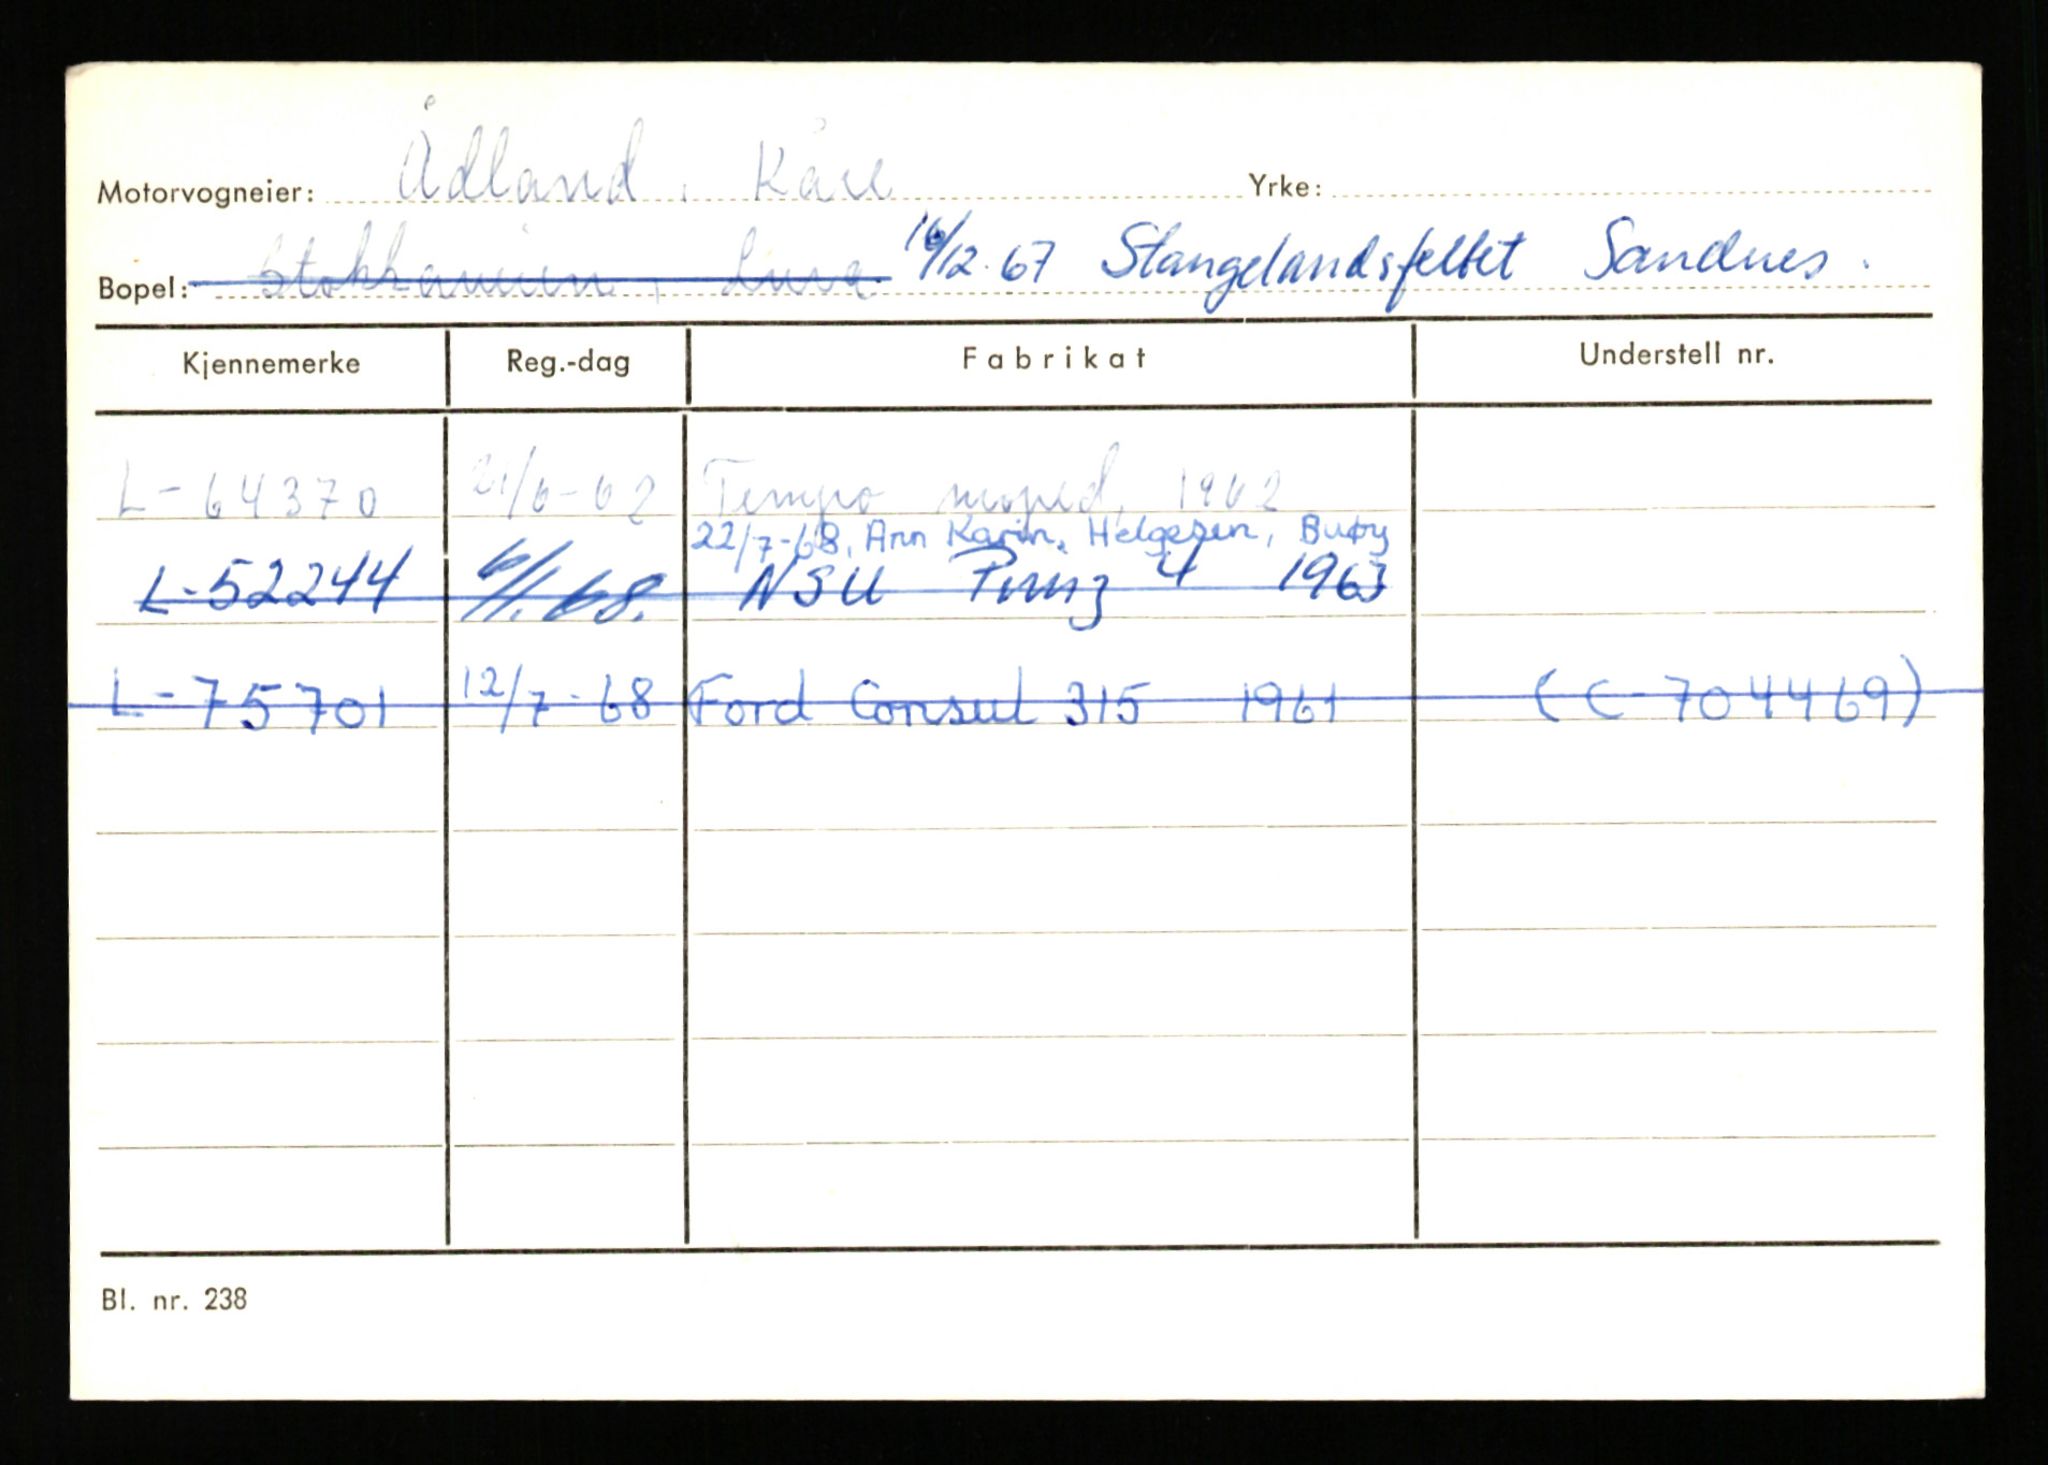 Motorvogneier: Ådland, Kåre Yrke:
Bopel: Stokkaveien, Lura 16/12.67 Stangelandsfeltet Sandnes.
Kjennemerke Reg.-dag Fabrikat Understell nr.
L-64370 21/6-62 Tempo moped, 1962
22/7-68, Ann Karin Helgesen, Buøy
L-52244 6/1.68. NSU Prinz 4 1963
L-75701 12/7-68 Ford Consul 315 1961 (C-704469)
Bl. nr. 238